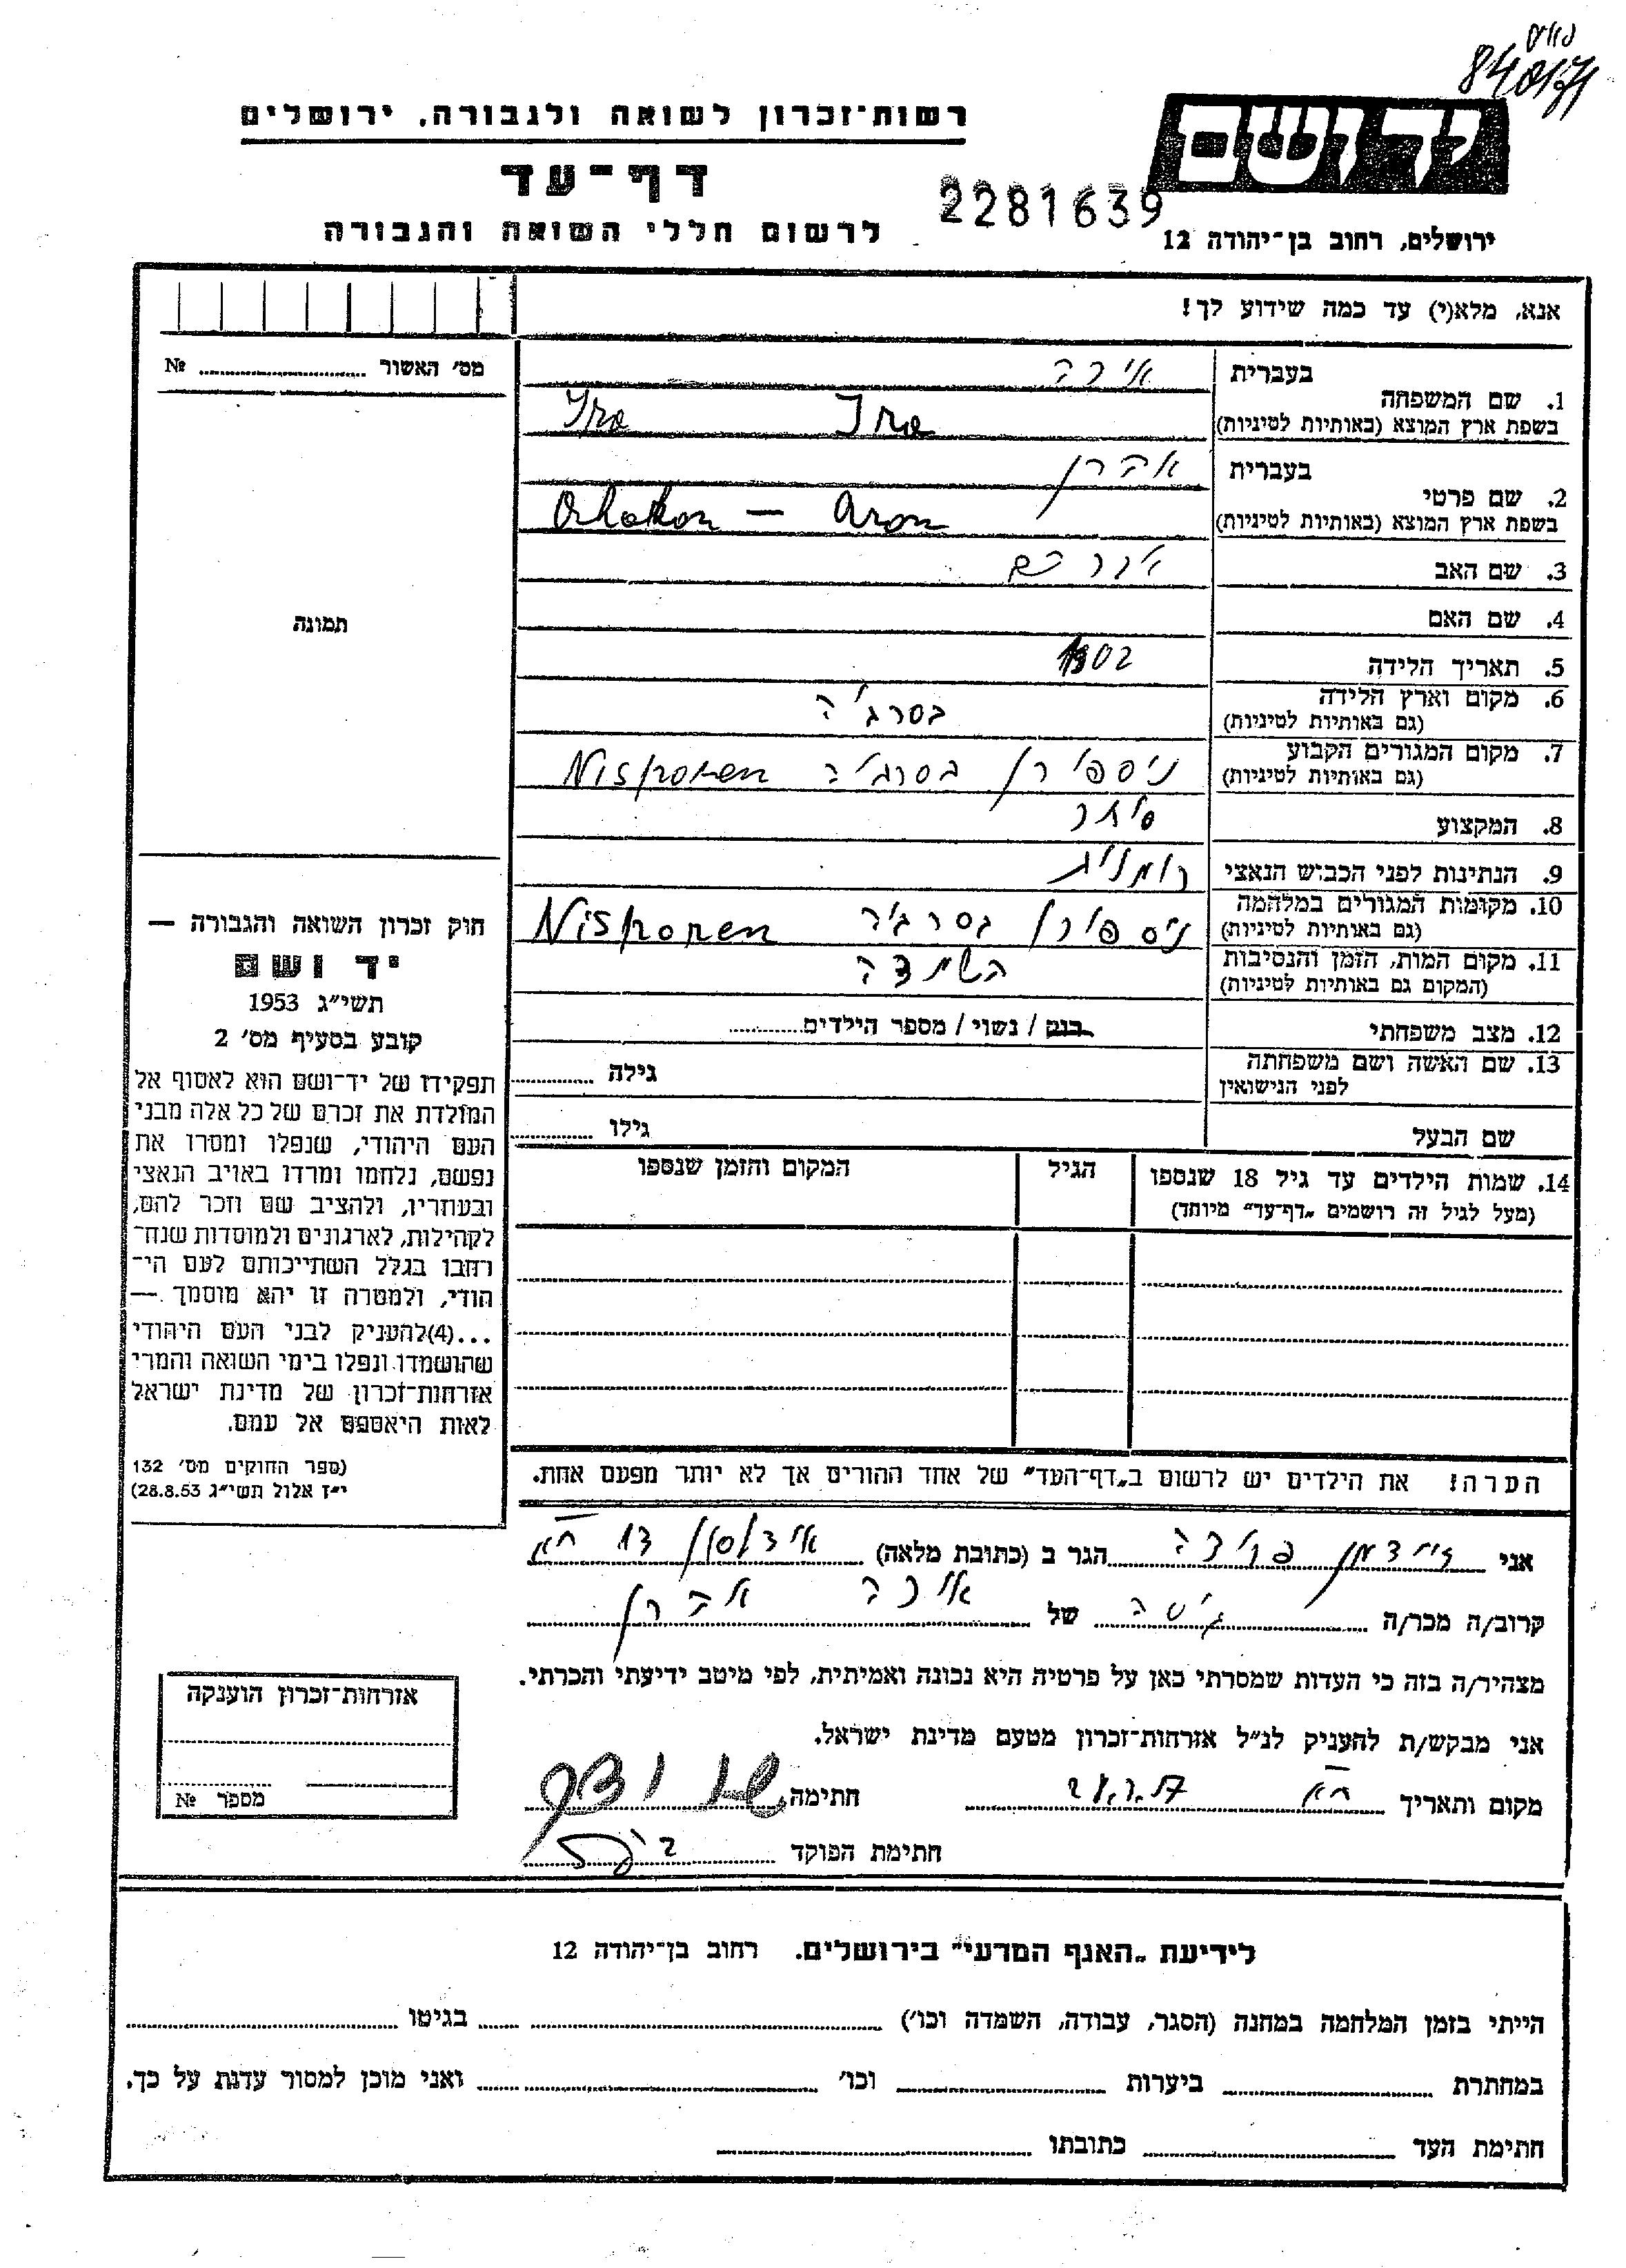 840171
רשות־זכרון לשואה ולגבורה, ירושלים
יד ושם
דף־עד
2281639
לרשום חללי השואה והגבורה
ירושלים, רחוב בן־יהודה 12
אנא, מלא(י) עד כמה שידוע לך!
מס׳ האשור № 
1. שם המשפחה
בעברית אירה
בשפת ארץ המוצא (באותיות לטיניות) Ira Ira
2. שם פרטי
בעברית אהרן
בשפת ארץ המוצא (באותיות לטיניות) Aron
3. שם האב אברהם
4. שם האם
5. תאריך הלידה 1902
6. מקום וארץ הלידה
(גם באותיות לטיניות) בסרביה
7. מקום המגורים הקבוע
(גם באותיות לטיניות) ניספורן בסרביה Nisporen
8. המקצוע סוחר
9. הנתינות לפני הכבוש הנאצי
10. מקומות המגורים במלחמה
(גם באותיות לטיניות) ניספורן Nisporen
11. מקום המות, הזמן והנסיבות
(המקום גם באותיות לטיניות) השמדה
12. מצב משפחתי רווק / נשוי / מספר הילדים
13. שם האשה ושם משפחתה
לפני הנישואין
גילה
שם הבעל גילו
14. שמות הילדים עד גיל 18 שנספו
(מעל לגיל זה רושמים „דף־עד” מיוחד)
הגיל
המקום והזמן שנספו
תמונה
חוק זכרון השואה והגבורה —
יד ושם
תשי״ג 1953
קובע בסעיף מס׳ 2
תפקידו של יד־ושם הוא לאסוף אל
המולדת את זכרם של כל אלה מבני
העם היהודי, שנפלו ומסרו את
נפשם, נלחמו ומרדו באויב הנאצי
ובעוזריו, ולהציב שם וזכר להם,
לקהילות, לארגונים ולמוסדות שנח־
רבו בגלל השתייכותם לעם הי־
הודי, ולמטרה זו יהא מוסמך —
...(4)להעניק לבני העם היהודי
שהושמדו ונפלו בימי השואה והמרי
אזרחות־זכרון של מדינת ישראל
לאות היאספם אל עמם.
(ספר החוקים מס׳ 132
י״ז אלול תשי״ג 28.8.53)
הערה! את הילדים יש לרשום ב„דף־העד” של אחד ההורים אך לא יותר מפעם אחת.
אני זיידמן פרידה הגר ב (כתובת מלאה)
קרוב/ה מכר/ה של אירה אהרן
מצהיר/ה בזה כי העדות שמסרתי כאן על פרטיה היא נכונה ואמיתית, לפי מיטב ידיעתי והכרתי.
אני מבקש/ת להעניק לנ״ל אזרחות־זכרון מטעם מדינת ישראל.
מקום ותאריך חתימה
חתימת הפוקד
אזרחות־זכרון הוענקה
מספר №
לידיעת „האגף המדעי” בירושלים. רחוב בן־יהודה 12
הייתי בזמן המלחמה במחנה (הסגר, עבודה, השמדה וכו׳) בגיטו
במחתרת ביערות וכו׳ ואני מוכן למסור עדות על כך.
חתימת העד כתובתו